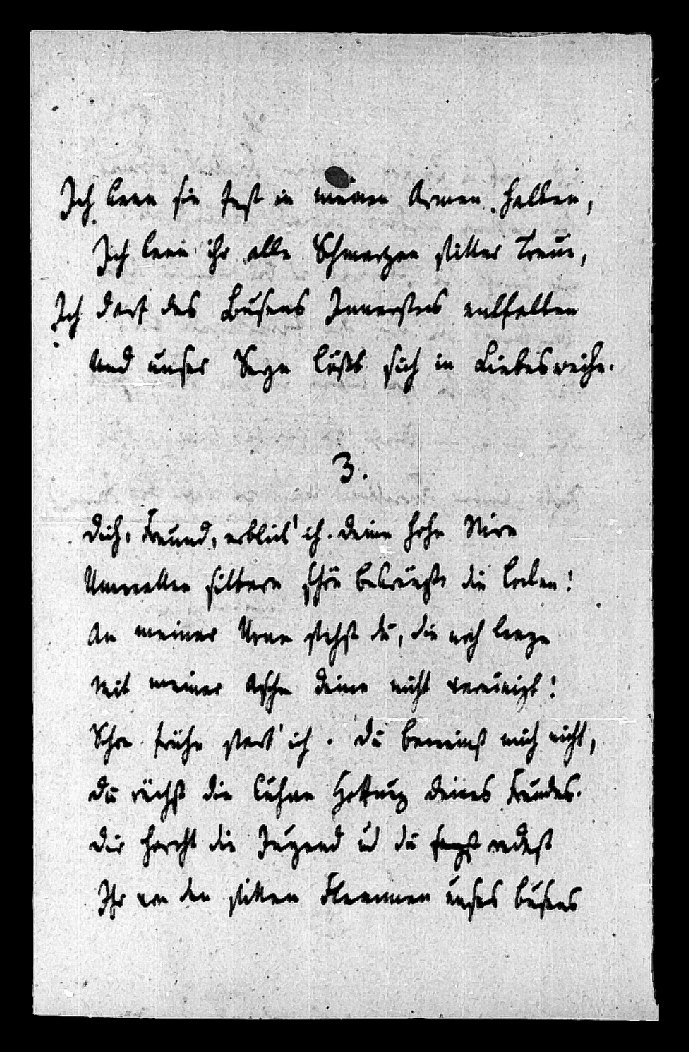 Ich kann sie fest in meinen Armen halten,
Ich kann ihr alle Schmerzen stiller Treue,
Ich darf des Busens Innerstes entfalten
Und unser Herz löst sich in Liebesweihe.
3.
Dich, Freund, erblick' ich. Deine hohe Stirn
Umwallen silbern schön bekränzt die Locken!
An meiner Urne stehst du, die noch lange
Mit meiner Asche deine nicht vereinigt!
Schon frühe starb' ich. Du beweinst mich nicht,
Du rächst die kühne Hoffnung deines Freundes.
Dir horcht die Jugend ud du redest
Ihr von den stillen Flammen unsers Busens